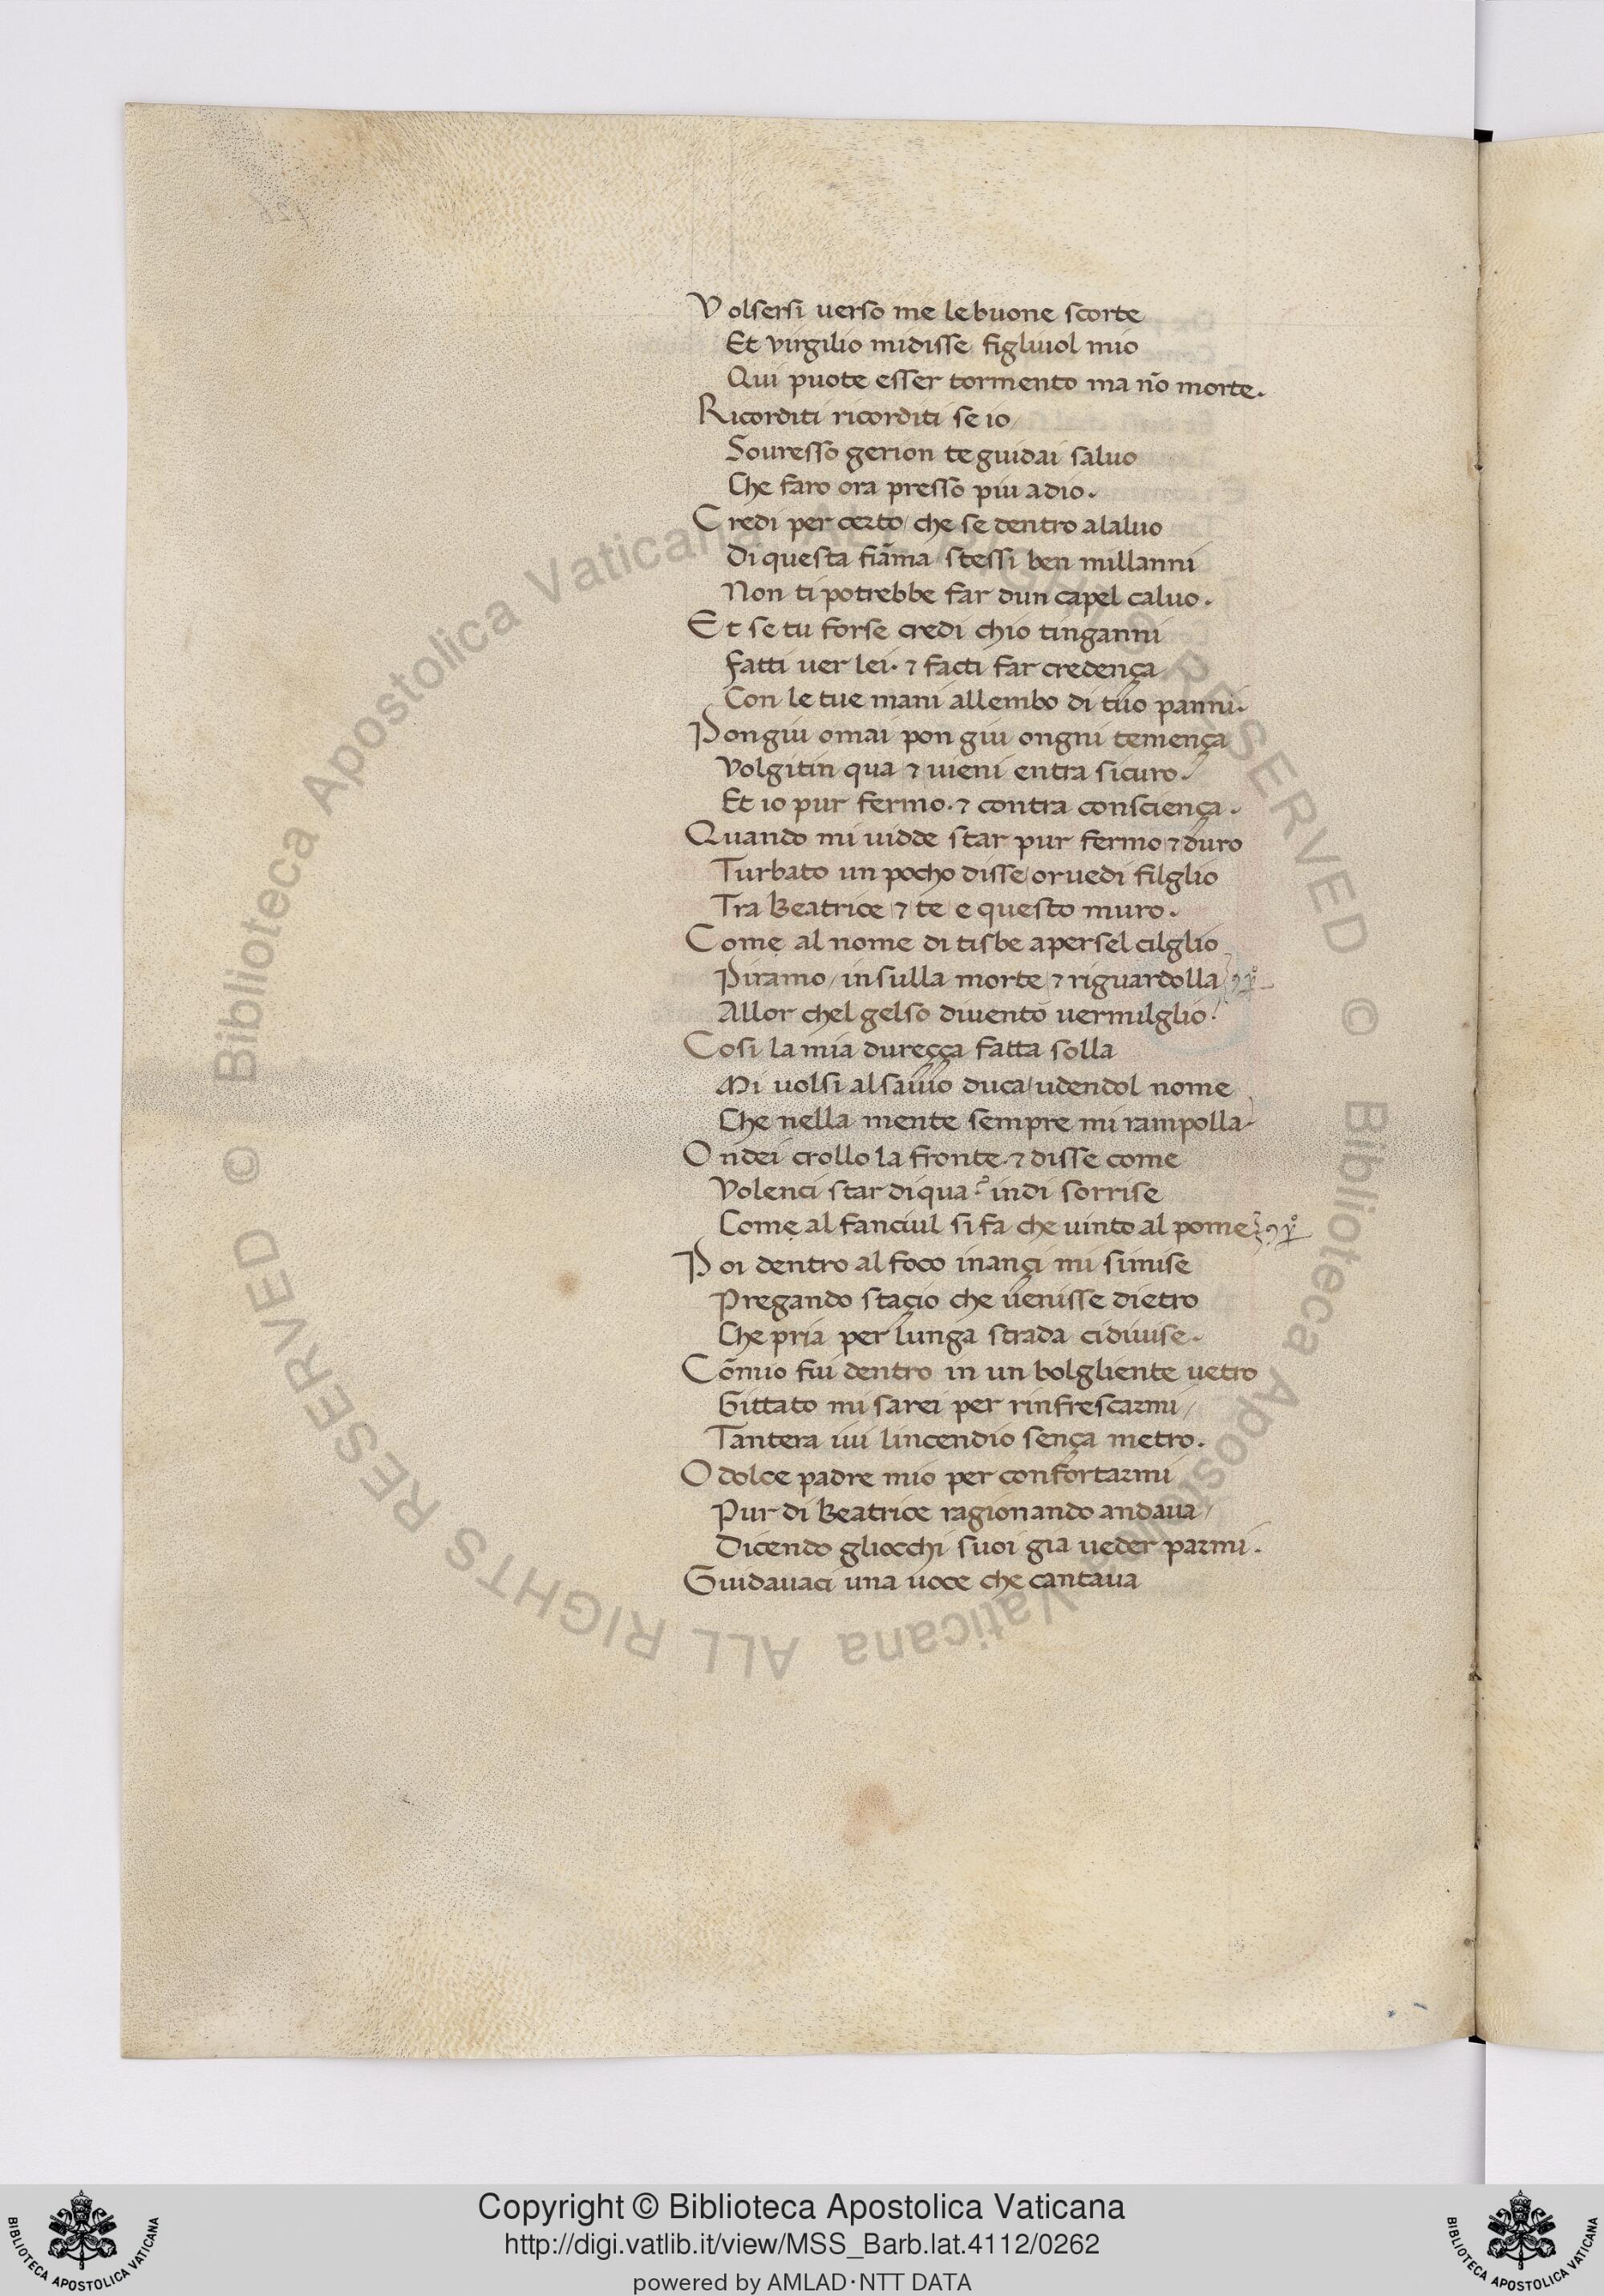 Volsersi uerso me lebuone scorte
Et virgilio midisse figluiol mio
Qui puote esser tormento ma nõ morte.
Ricorditi ricorditi se io/
Souresso gerion te guidai saluo
Che faro ora presso piu adio.
Credi per certo/ che se dentro alaluo
Di questa fiãma stessi ben millanni
Non ti potrebbe far dun capel caluo.
Et se tu forse credi chio tinganni
fatti uer lei. ⁊ facti far credença
Con le tue mani allembo di tuo panni.
Pongiu omai pon giu ongni temença
Volgitin qua ⁊ uieni entra sicuro.
Et io pur fermo. ⁊ contra consciença.
Quando mi uidde star pur fermo ⁊ duro
Turbato un pocho disse/ or uedi filglio
Tra Beatrice/ ⁊ te/ e questo muro.
Come al nome di tisbe apersel cilglio
Piramo/ insulla morte/ ⁊ riguardolla
Allor chel gelso diuento uermilglio.
Cosi la mia dureçça fatta solla
Mi uolsi alsauio duca/ udendol nome
Che nella mente sempre mi rampolla.
Ondei crollo la fronte. ⁊ disse come
Volenci star diqua? indi sorrise
Come al fanciul si fa/ che uinto al pome
Poi dentro al foco inançi mi simise
Pregando staçio che uenisse dietro
Che pria per lunga strada cidiuise.
Cõmio fui dentro in un bolgliente uetro
Gittato mi sarei per rinfrescarmi/
Tantera iui lincendio sença metro.
O dolce padre mio per confortarmi
Pur di Beatrice ragionando andaua/
Dicendo gliocchi suoi gia ueder parmi.
Guidauaci una uoce che cantaua
© Biblioteca Apostolica Vaticana ALL RIGHTS RESERVED © Biblioteca Apostolica Vaticana ALL RIGHTS RESERVED
Copyright © Biblioteca Apostolica Vaticana
http://digi.vatlib.it/view/MSS_Barb.lat.4112/0262
powered by AMLAD·NTT DATA
BIBLIOTECA APOSTOLICA VATICANA
BIBLIOTECA APOSTOLICA VATICANA